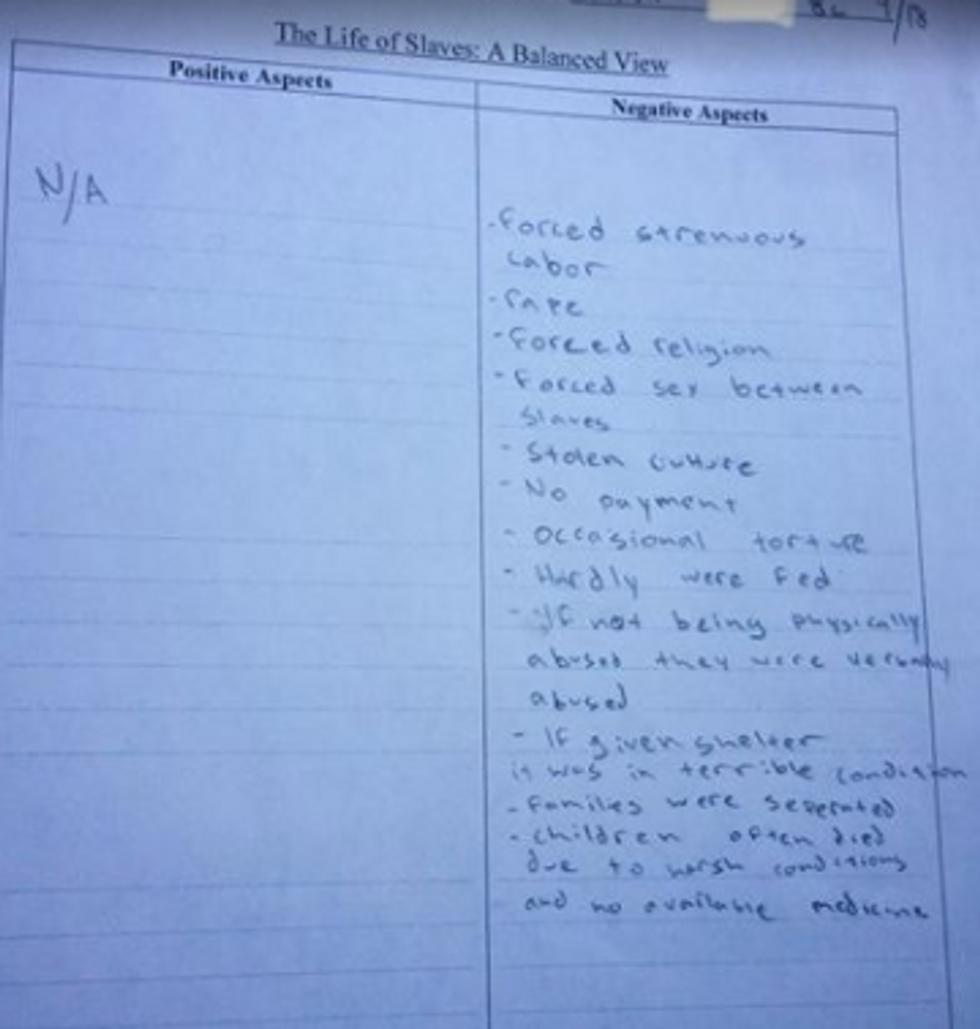 8c 4/18
The Life of Slaves: A Balanced View
Positive Aspects
Negative Aspects
N/A
- forced strenuous
Labor
- rape
- forced religion
- forced sex between
slaves
- Stolen culture
- No payment
- occasional torture
- Hardly were fed
- If not being physically
abused they were verbally
abused
- If given shelter
it was in terrible condition
- families were seperated
- children often died
due to harsh conditions
and no available medicine